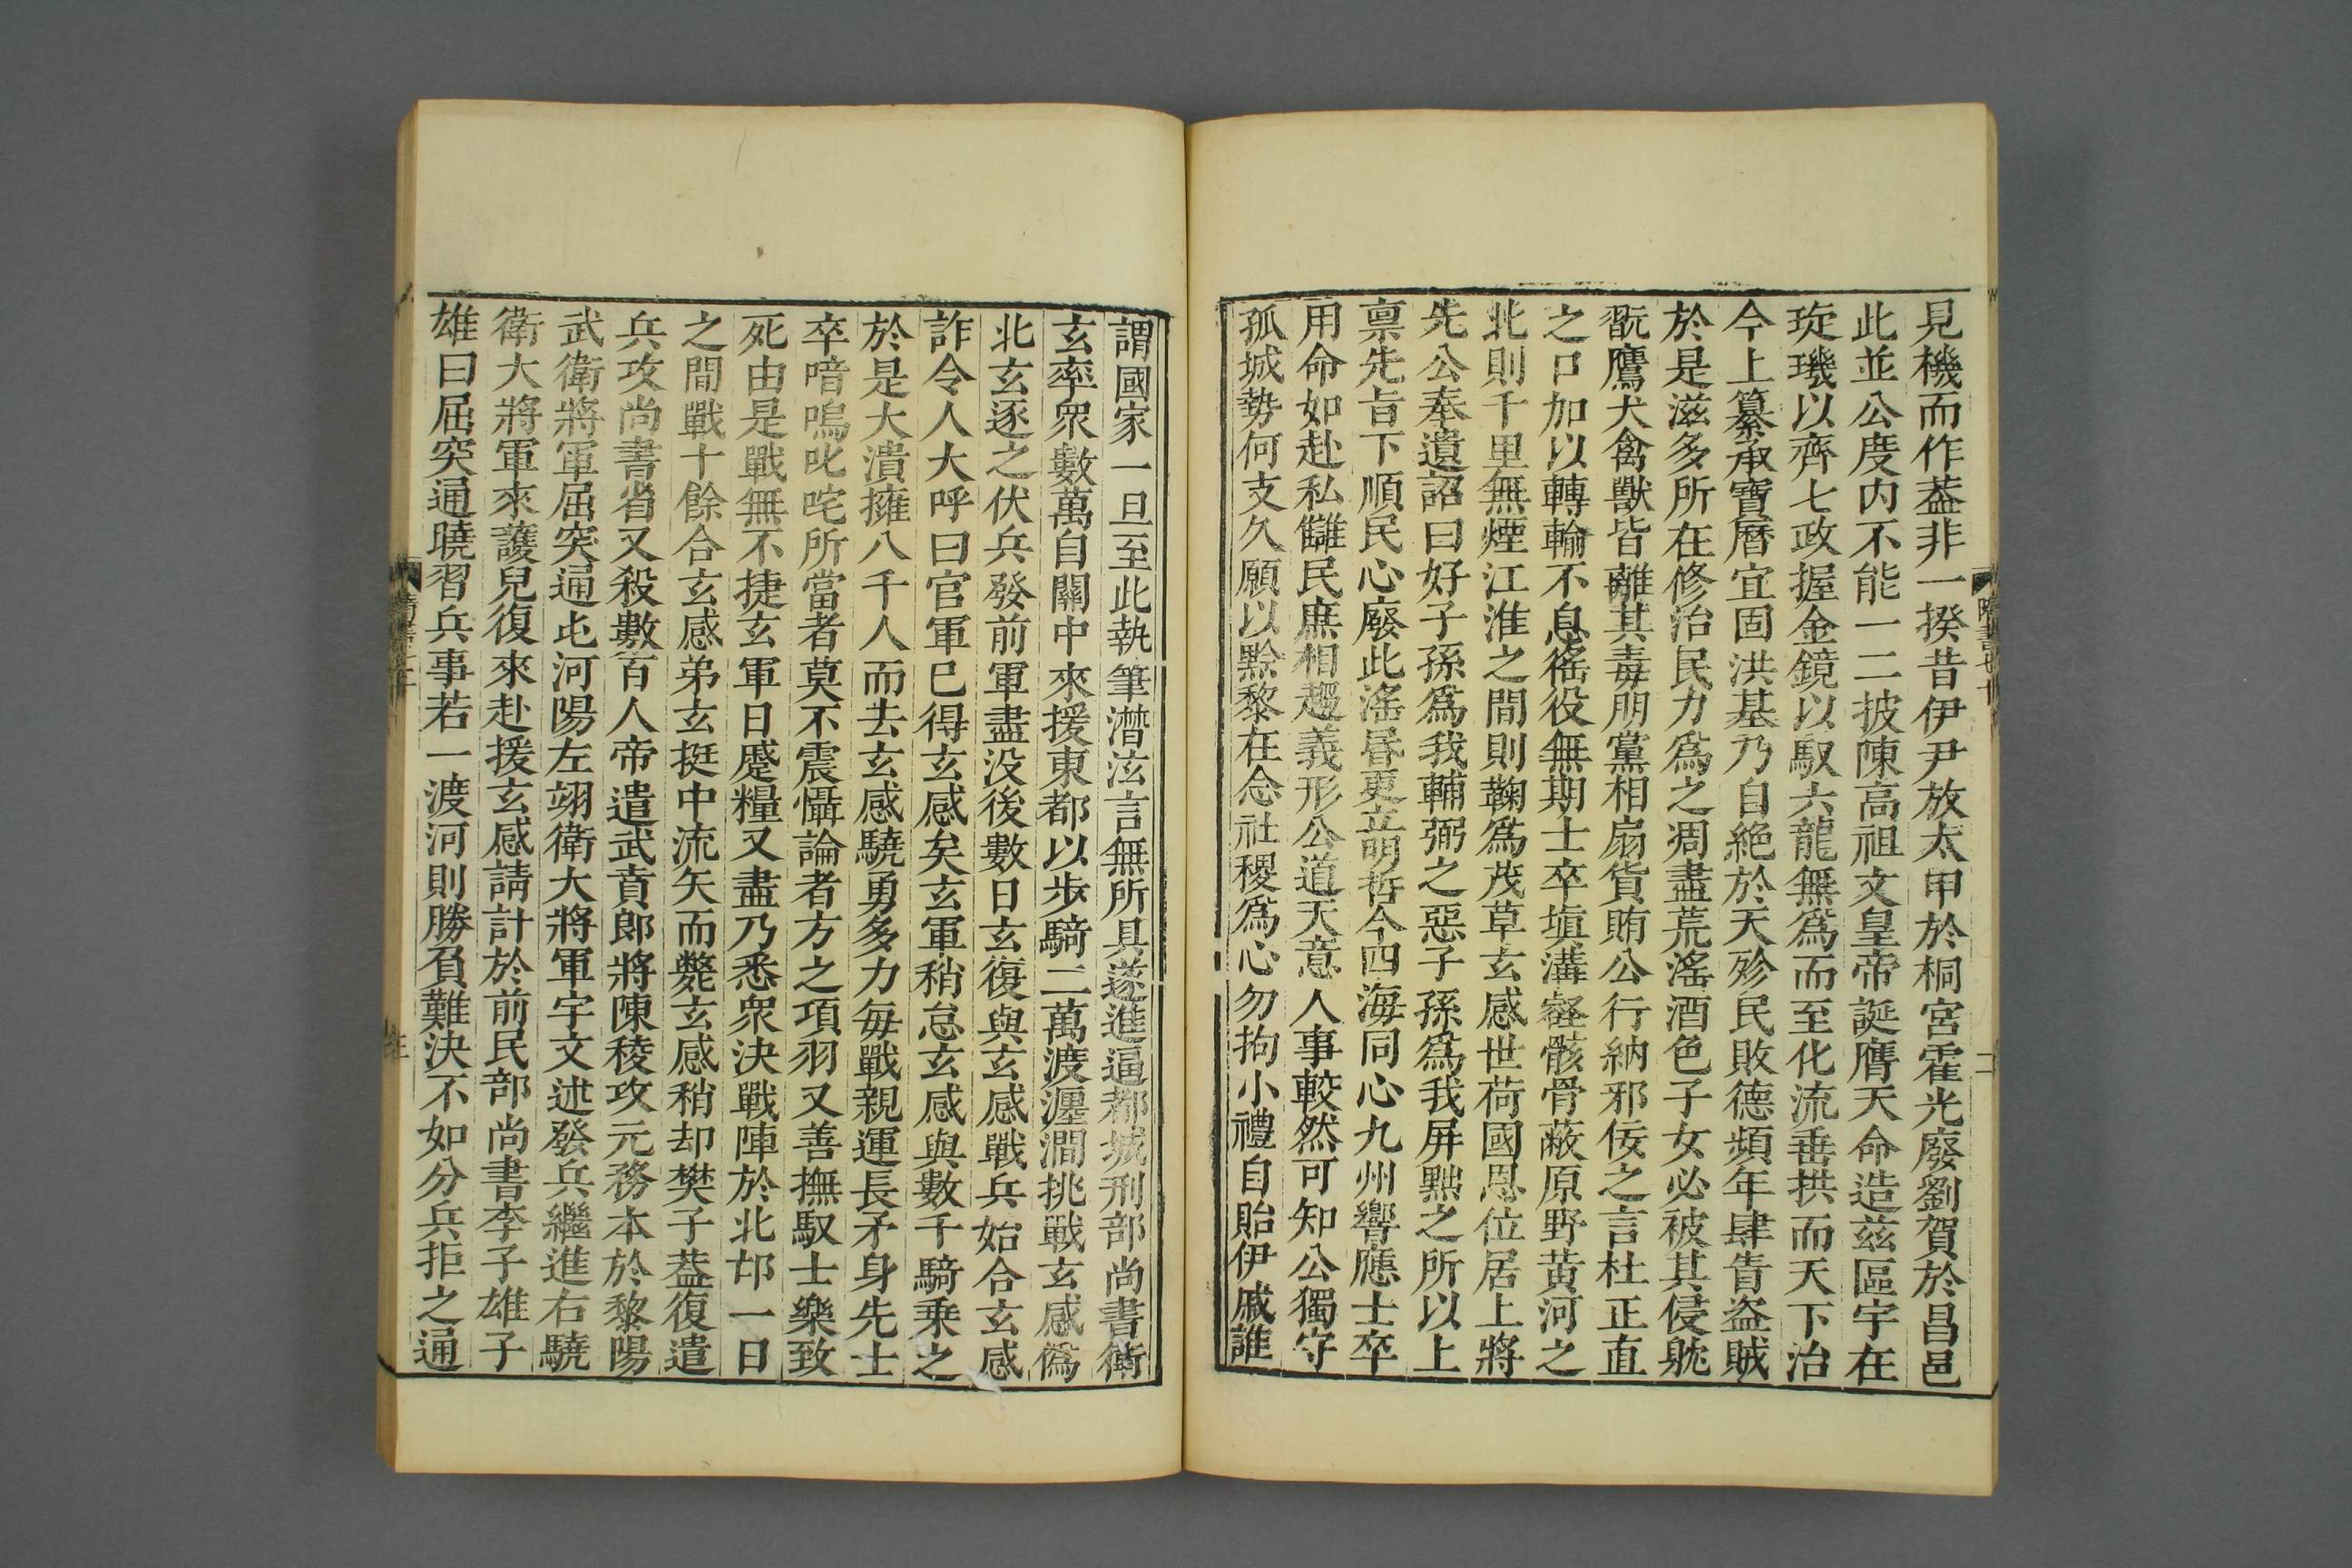 見機而作葢非一揆昔伊尹放太甲於桐宮霍光廢劉賀於昌邑
此並公度内不能一二披陳高祖文皇帝誕膺天命造兹區宇在
琁璣以齊七政握金鏡以馭六龍無爲而至化流垂拱而天下治
今上纂承寶曆宜固洪基乃自絶於天殄民敗德頻年肆眚盗賊
於是滋多所在修治民力爲之凋盡荒滛酒色子女必被其侵躭
翫鷹犬禽獸皆離其毒朋黨相扇貨賄公行納邪佞之言杜正直
之口加以轉輸不息徭役無期士卒塡溝壑骸骨蔽原野黄河之
北則千里無煙江淮之間則鞠爲茂草玄感世荷國恩位居上將
先公奉遺詔曰好子孫爲我輔弼之惡子孫爲我屏黜之所以上
禀先旨下順民心廢此滛昬更立明哲今四海同心九州響應士卒
用命如赴私讎民庶相趨義形公道天意人事較然可知公獨守
孤城勢何支久願以黔黎在念社稷爲心勿拘小禮自貽伊戚誰
謂國家一旦至此執筆潸泫言無所具遂進逼都城刑部尚書衛
玄率衆數萬自關中來援東都以步騎二萬渡瀍澗挑戰玄感僞
北玄逐之伏兵發前軍盡没後數日玄復與玄感戰兵始合玄感
詐令人大呼曰官軍已得玄感矣玄軍稍怠玄感與數千騎乗之
於是大潰擁八千人而去玄感驍勇多力毎戰親運長矛身先士
卒喑嗚叱咤所當者莫不震懾論者方之項羽又善撫馭士樂致
死由是戰無不捷玄軍日蹙糧又盡乃悉衆決戰陣於北邙一日
之間戰十餘合玄感弟玄挺中流矢而斃玄感稍却樊子葢復遣
兵攻尚書省又殺數百人帝遣武賁郎將陳稜攻元務本於黎陽
武衛將軍屈突通屯河陽左翊衛大將軍宇文述發兵繼進右驍
衛大將軍來護兒復來赴援玄感請計於前民部尚書李子雄子
雄曰屈突通曉習兵事若一渡河則勝負難決不如分兵拒之通